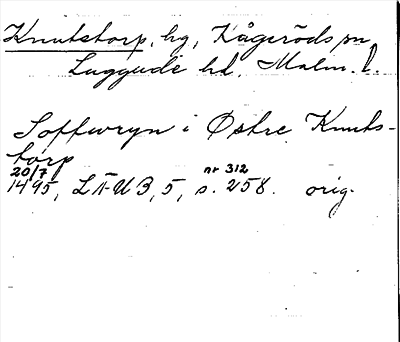 Knutstorp, hg, Kågeröds sn
Luggude hd. Malm. l.
Soffwryn i Østre Knuts-
torp
20/7 nr 312
1495, LÄ-UB, 5, s. 258. orig.